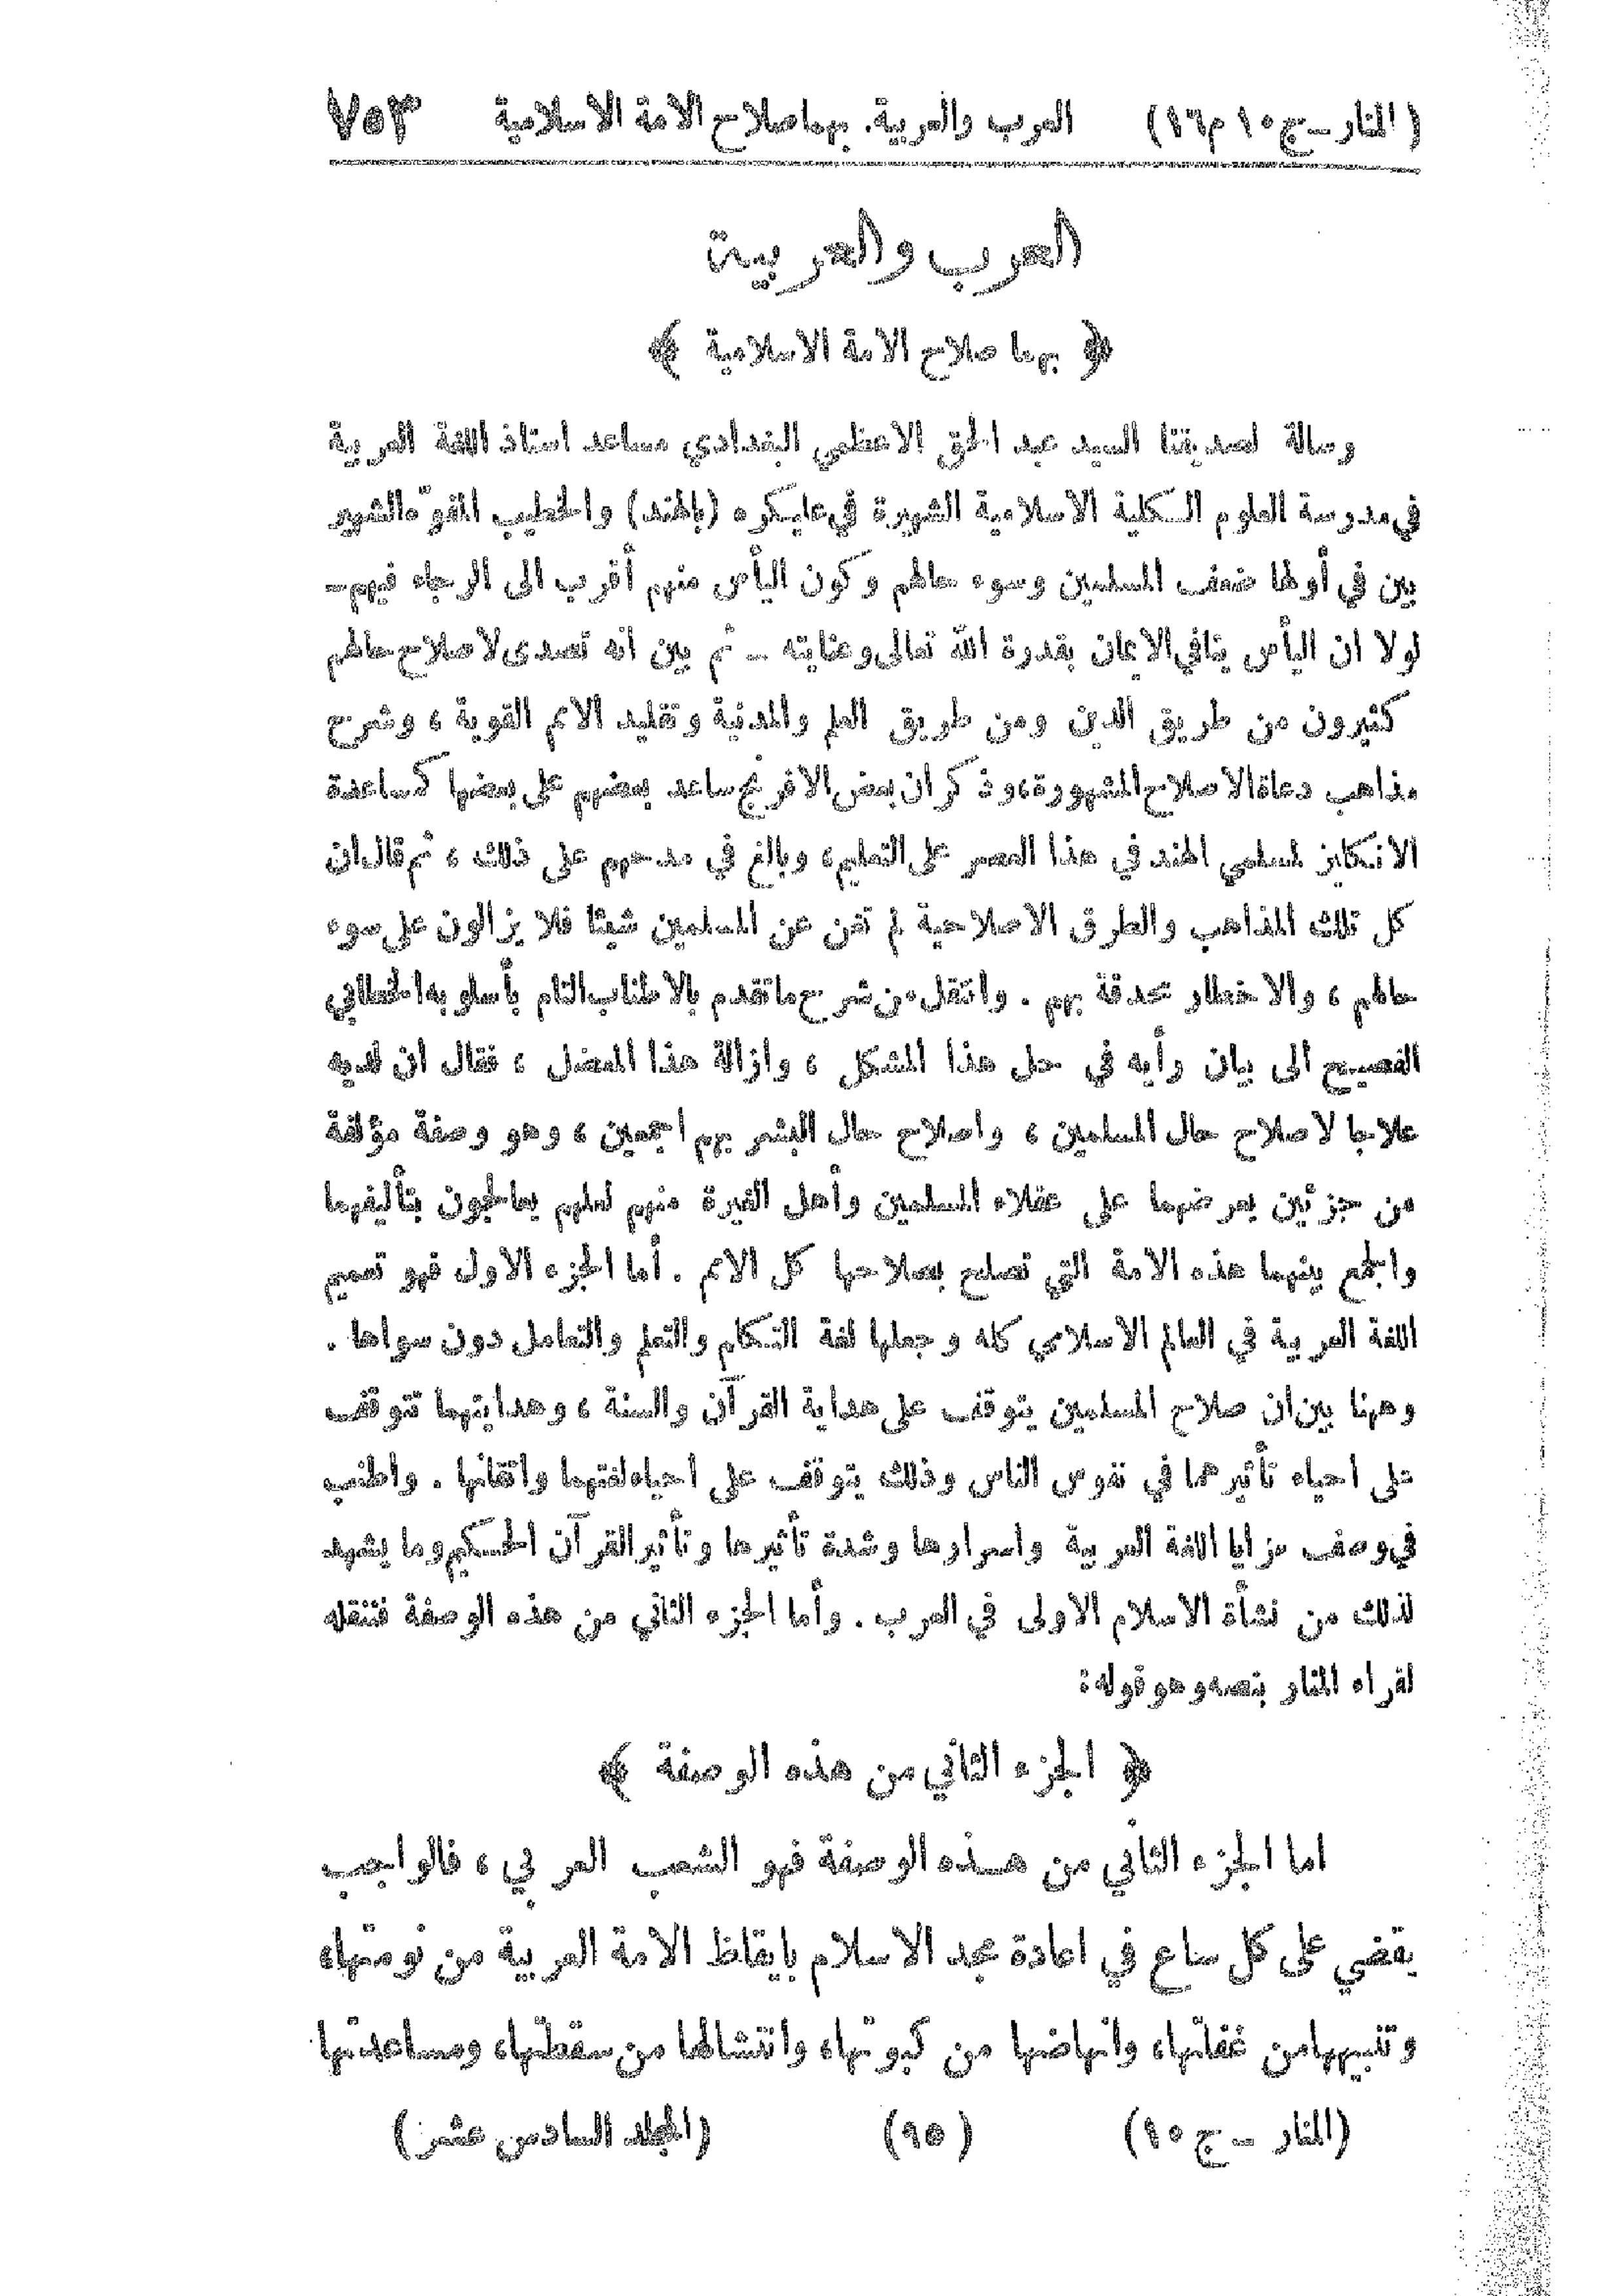 (المنار – ج ١٠ م ١٦) العرب والعربية. بهما صلاح الامة الاسلامية ٧٥٣
العرب والعربية
﴿ بهما صلاح الامة الاسلامية ﴾
رسالة لصديقنا السيد عبد الحق الاعظمي البغدادي مساعد استاذ اللغة العربية
في مدرسة العلوم الكلية الاسلامية الشهيرة في عليكره (بالهند) والخطيب المفوّه الشهير
بين في أولها ضعف المسلمين وسوء حالهم وكون اليأس منهم أقرب الى الرجاء فيهم –
لولا ان اليأس ينافي الايمان بقدرة الله تعالى وعنايته – ثم بين انه تصدى لاصلاح حالهم
كثيرون من طريق الدين ومن طريق العلم والمدنية وتقليد الامم القوية ، وشرح
مذاهب دعاة الاصلاح المشهورة، وذكر ان بعض الافرنج ساعد بعضهم على بعضها كمساعدة
الانكليز لمسلمي الهند في هذا العصر على التعليم، وبالغ في مدحهم على ذلك ، ثم قال ان
كل تلك المذاهب والطرق الاصلاحية لم تغن عن المسلمين شيئا فلا يزالون على سوء
حالهم ، والاخطار محدقة بهم . وانتقل من شرح ما تقدم بالاطناب التام بأسلوبه الخطابي
الفصيح الى بيان رأيه في حل هذا المشكل ، وازالة هذا المعضل ، فقال ان لديه
علاجا لاصلاح حال المسلمين ، واصلاح حال البشر بهم اجمعين ، وهو وصفة مؤلفة
من جزئين يعرضهما على عقلاء المسلمين وأهل الغيرة منهم لعلهم يعالجون بتأليفهما
والجمع بينهما هذه الامة التي تصلح بصلاحها كل الامم . أما الجزء الاول فهو تعميم
اللغة العربية في العالم الاسلامي كله وجعلها لغة التكلم والتعلم والتعامل دون سواها .
وههنا بين ان صلاح المسلمين يتوقف على هداية القرآن والسنة ، وهدايتهما تتوقف
على احياء تأثيرهما في نفوس الناس وذلك يتوقف على احياء لغتهما واتقانها . واطنب
في وصف مزايا اللغة العربية واسرارها وشدة تأثيرها وتأثير القرآن الحكيم وما يشهد
لذلك من نشأة الاسلام الاولى في العرب . وأما الجزء الثاني من هذه الوصفة فننقله
لقراء المنار بنصه وهو قوله :
﴿ الجزء الثاني من هذه الوصفة ﴾
اما الجزء الثاني من هذه الوصفة فهو الشعب العربي ، فالواجب
يقضي على كل ساع في اعادة مجد الاسلام بايقاظ الامة العربية من نومتها،
وتنبيهها من غفلتها، وانهاضها من كبوتها، وانتشالها من سقطتها، ومساعدتها
(المنار – ج ١٠) (٩٥) (المجلد السادس عشر)